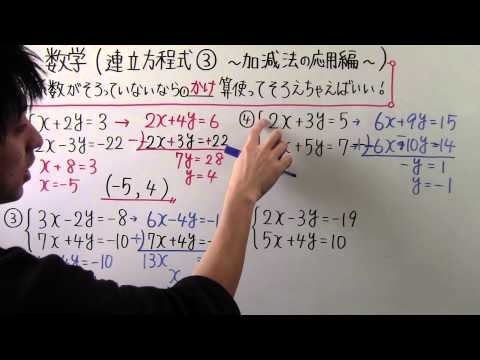 数学(連立方程式③ ～加減法の応用編～)
数がそろっていないなら①かけ算使ってそろえちゃえばいい！
x+2y=3 → 2x+4y=6
2x-3y=-22 -)-2x+3y=+22
x+8=3 7y=28
x=-5 y=4
(-5,4)
④ 2x+3y=5 → 6x+9y=15
x+5y=7 → -)-6x-10y=-14
-y=1
y=-1
③ 3x-2y=-8 → 6x-4y=-1
7x+4y=-10 +)7x+4y=-
4y=-10 13x =
x
2x-3y=-19
5x+4y=10